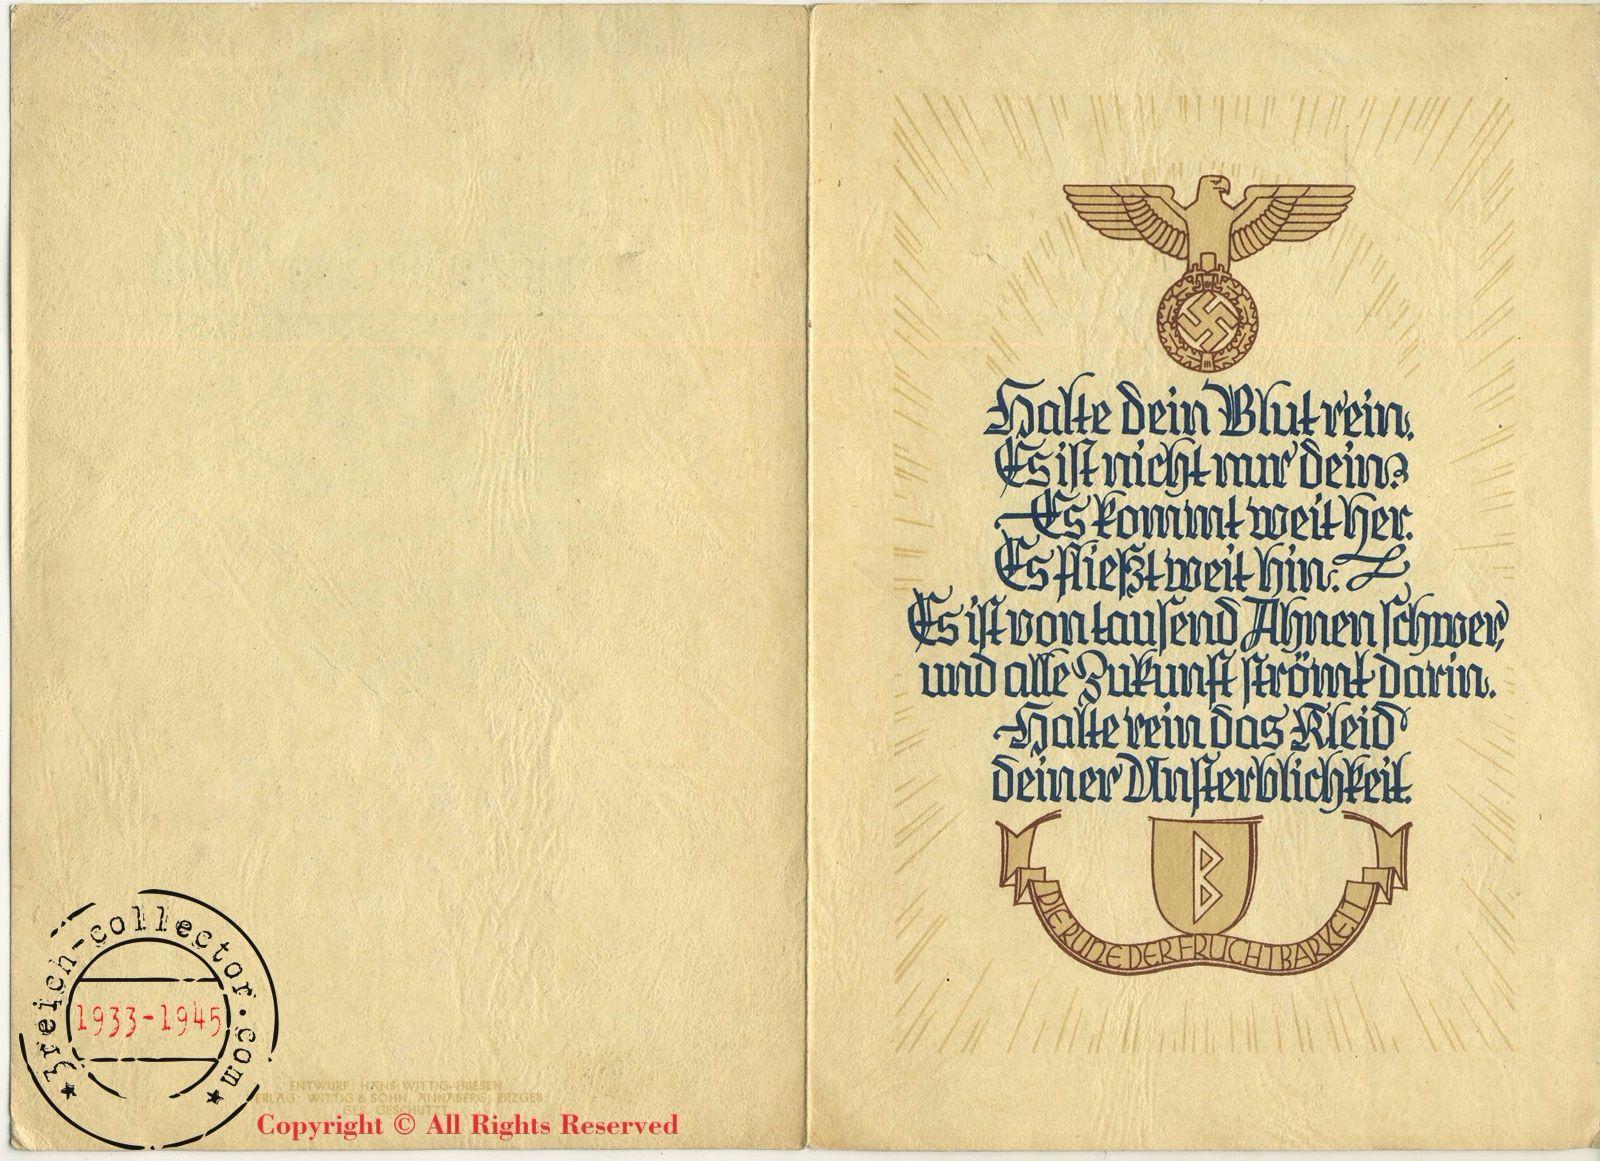 3reich-collector.com
1933-1945
ENTWURF: HANS WITTIG-FRIESEN
VERLAG: WITTIG & SOHN, ANNABERG, ERZGEB.
GES. GESCHÜTZT
Copyright © All Rights Reserved
Halte dein Blut rein.
Es ist nicht nur dein.
Es kommt weit her.
Es fließt weit hin.
Es ist von tausend Ahnen schwer,
und alle Zukunft strömt darin.
Halte rein das Kleid
deiner Unsterblichkeit.
DIE RUNE DER FRUCHTBARKEIT